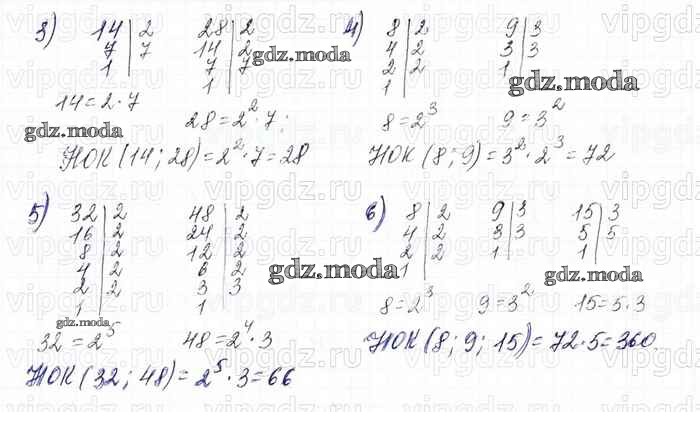 3) 14 | 2
7 | 7
1
28 | 2
14 | 2
7 | 7
1
14 = 2 · 7
28 = 2² · 7;
НОК (14; 28) = 2² · 7 = 28
4) 8 | 2
4 | 2
2 | 2
1
9 | 3
3 | 3
1
8 = 2³
9 = 3²
НОК (8; 9) = 3² · 2³ = 72
5) 32 | 2
16 | 2
8 | 2
4 | 2
2 | 2
1
48 | 2
24 | 2
12 | 2
6 | 2
3 | 3
1
32 = 2⁵
48 = 2⁴ · 3
НОК (32; 48) = 2⁵ · 3 = 66
6) 8 | 2
4 | 2
2 | 2
1
9 | 3
3 | 3
1
15 | 3
5 | 5
1
8 = 2³
9 = 3²
15 = 5 · 3
НОК (8; 9; 15) = 72 · 5 = 360
gdz.moda
gdz.moda
gdz.moda
gdz.moda
gdz.moda
gdz.moda
vipgdz.ru